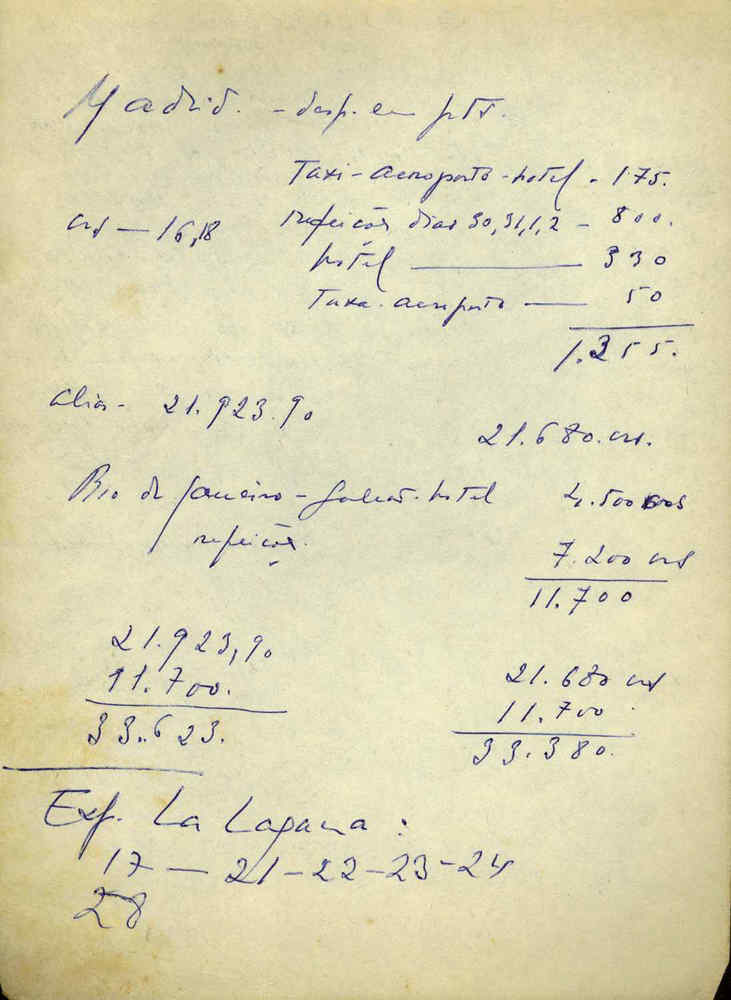 Madrid. - desp. em pts.
Taxi - aeroporto - hotel - 175.
crs — 16,18 refeições dias 30,31,1,2 - 800.
hotel ——— 330
Taxa - aeroporto —— 50
1.355.
aliás - 21.923.90
21.680. crs.
Rio de Janeiro - Galeão - hotel 4.500 crs
refeições. 7.200 crs
11.700
21.923,90 21.680 crs
11.700. 11.700
33.623. 33.380.
Exp. La Laguna :
17 — 21 - 22 - 23 - 24
28